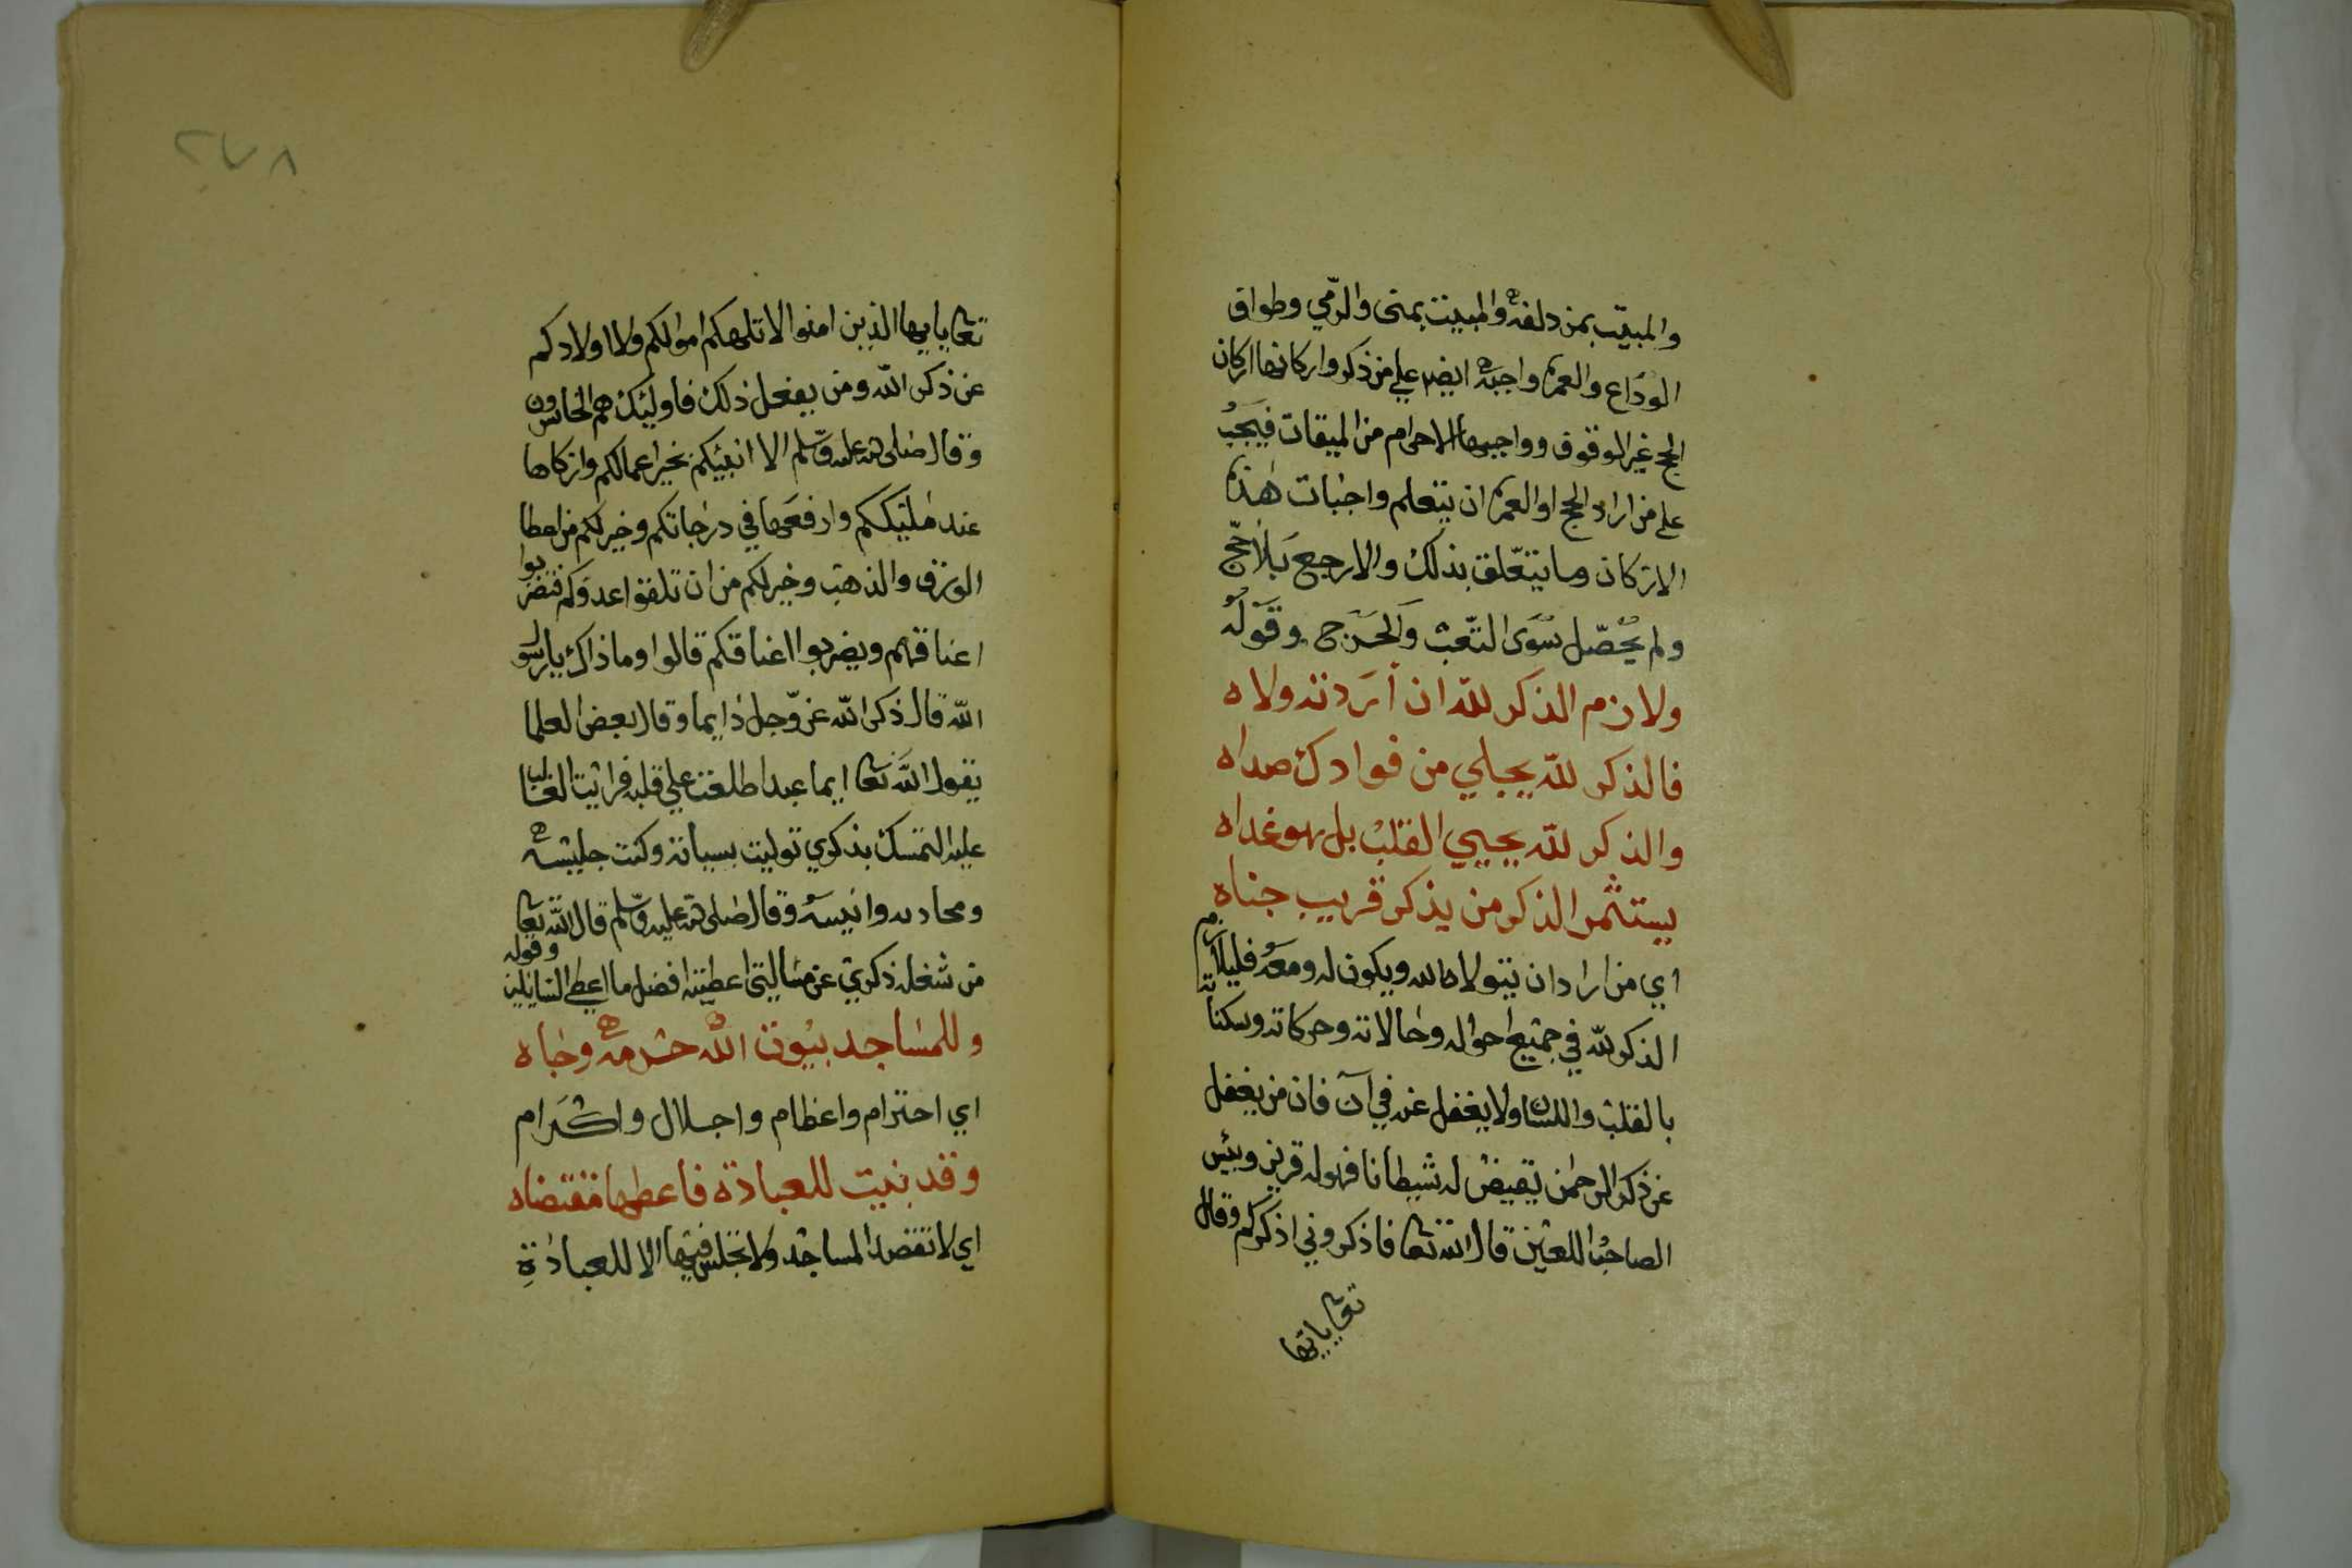 والمبيت بمزدلفة والمبيت بمنى والرمي وطواف
الوداع والعمرة واجبة ايضا على من ذكر واركانها اركان
الحج غير الوقوف وواجبها الاحرام من الميقات فيجب
على من اراد الحج او العمرة ان يتعلم واجبات هذه
الاركان وما يتعلق بذلك والا رجع بلا حج
ولم يحصل سوى التعب والحرج وقوله
ولازم الذكر لله ان أردته ولاه
فالذكر لله يجلي من فوادك صداه
والذكر لله يحيي القلب بل هو غداه
يستثمر الذكر من يذكر قريب جناه
اي من اراد ان يتولاه الله ويكون له ومعه فليلازم
الذكر لله في جميع احواله وحالاته وحركاته وسكناته
بالقلب واللسان ولا يغفل عنه في آن فان من يغفل
عن ذكر الرحمن نقيض له شيطانا فهو له قرين وبئس
الصاحب اللعين قال الله تعا فاذكروني اذكركم وقال
تعا يايها
٢٧٨
تعا يايها الذين امنوا لا تلهكم اموالكم ولا اولادكم
عن ذكر الله ومن يفعل ذلك فاوليك هم الخاسرون
وقال صلى الله عليه وسلم الا انبئكم بخير اعمالكم وازكاها
عند مليككم وارفعها في درجاتكم وخير لكم من اعطا
الورق والذهب وخير لكم من ان تلقوا عدوكم فتضربوا
اعناقهم ويضربوا اعناقكم قالوا وما ذاك يا رسول
الله قال ذكر الله عز وجل دايما وقال بعض العلما
يقول الله تعا ايما عبد اطلعت على قلبه فرايت الغالب
عليه التمسك بذكري توليت سياسته وكنت جليسه
ومحادثه وانيسه وقال صلى الله عليه وسلم قال الله تعا
من شغله ذكري عن مسالتي اعطيته افضل ما اعطي السايلين وقوله
وللمساجد بيوت الله حرمة وجاه
اي احترام واعظام واجلال واكرام
وقد بنيت للعبادة فاعطها مقتضاه
اي لا تقصد المساجد ولا تجلس فيها الا للعبادة